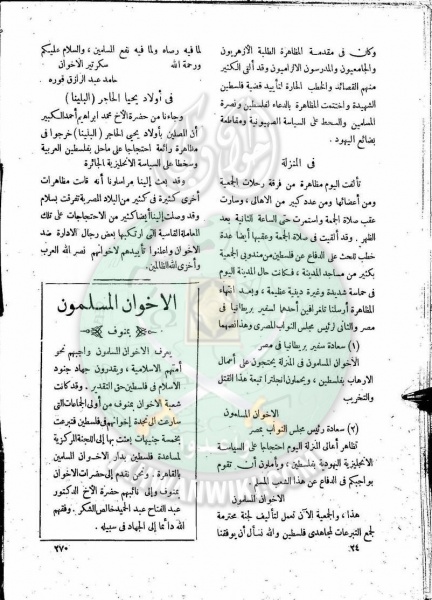 وكان في مقدمة المظاهرة الطلبة الأزهريون
والجامعيون والمدرسون الالزاميون وقد ألقى الكثير
منهم القصائد والخطب الحارة لتأييد قضية فلسطين
الشهيدة واختتمت المظاهرة بالدعاء لفلسطين ونصرة
المسلمين والسخط على السياسة الصهيونية ومقاطعة
بضائع اليهود .
في المنزلة
تألفت اليوم مظاهرة من فرقة رحلات الجمعية
ومن أعضائها ومن عدد كبير من الأهالى ، وسارت
عقب صلاة الجمعة واستمرت حتى الساعة الثانية بعد
الظهر . وقد ألقيت في صلاة الجمعة وعقبها أيضا عدة
خطب للحث على الدفاع عن فلسطين من مندوبي الجمعية
بكثير من مساجد المدينة ، فكانت حال المدينة اليوم
في حماسة شديدة وغيرة دينية عظيمة ، وبعد انتهاء
المظاهرة أرسلنا تلغرافين أحدها لسفير بريطانيا في
مصر والثاني لرئيس مجلس النواب المصرى وهذا نصهما
(١) سعادة سفير بريطانيا في مصر
الاخوان المسلمون في المنزلة يحتجون على أعمال
الارهاب بفلسطين ، ويحملون انجلترا تبعة هذا القتل
والتخريب
الاخوان المسلمون
(٢) سعادة رئيس مجلس النواب بمصر
تظاهر أهالى المنزلة اليوم احتجاجا على السياسة
الانجليزية اليهودية بفلسطين ، ويأملون أن تقوم
بواجبكم في الدفاع عن هذا الشعب المسلم
الاخوان المسلمون
هذا ، والجمعية الآن تعمل لتأليف لجنة محترمة
لجمع التبرعات لمجاهدى فلسطين والله نسأل أن يوفقنا
٢٤
لما فيه رضاه ولما فيه نفع المسلمين ، والسلام عليكم
ورحمة الله سكرتير الاخوان
حامد عبد الرازق قوره
في أولاد يحيا الحاجر (البلينا)
وجاءنا من حضرة الأخ محمد ابراهيم أحمد الكبير
أن المصلين بأولاد يحيى الحاجر (البلينا) خرجوا في
مظاهرة رائعة احتجاجا على ماحل بفلسطين العربية
وسخطا على السياسة الانجليزية الجائرة
وقد بعث إلينا مراسلونا أنه قامت مظاهرات
أخرى كثيرة في كثير من البلاد المصرية تفرقت بسلام
وقد وصلت إلينا أيضا كثير من الاحتجاجات على تلك
المعاملة القاسية التي ارتكبها بعض رجال الادارة ضد
الاخوان وأعلنوا تأييدهم لاخوانهم نصر الله العرب
وأخزى الله الظالمين .
الاخوان المسلمون
بمنوف
يعرف الاخوان المسلمون واجبهم نحو
أمتهم الاسلامية ، ويقدرون جهاد جنود
الاسلام في فلسطين حق التقدير . وقد كانت
شعبة الاخوان بمنوف من أولى الجماعات التي
سارعت الى نجدة إخوانهم في فلسطين فتبرعت
بخمسة جنيهات بعثت بها إلى اللجنة المركزية
لمساعدة فلسطين بدار الاخوان المسلمين
بالقاهرة . ونحن نقدم إلى حضرات الاخوان
بمنوف وإلى نائبهم حضرة الأخ الدكتور
عبد الفتاح عبد الحميد خالص الشكر . وفقهم
الله دائما إلى الجهاد في سبيله .
٢٧٠